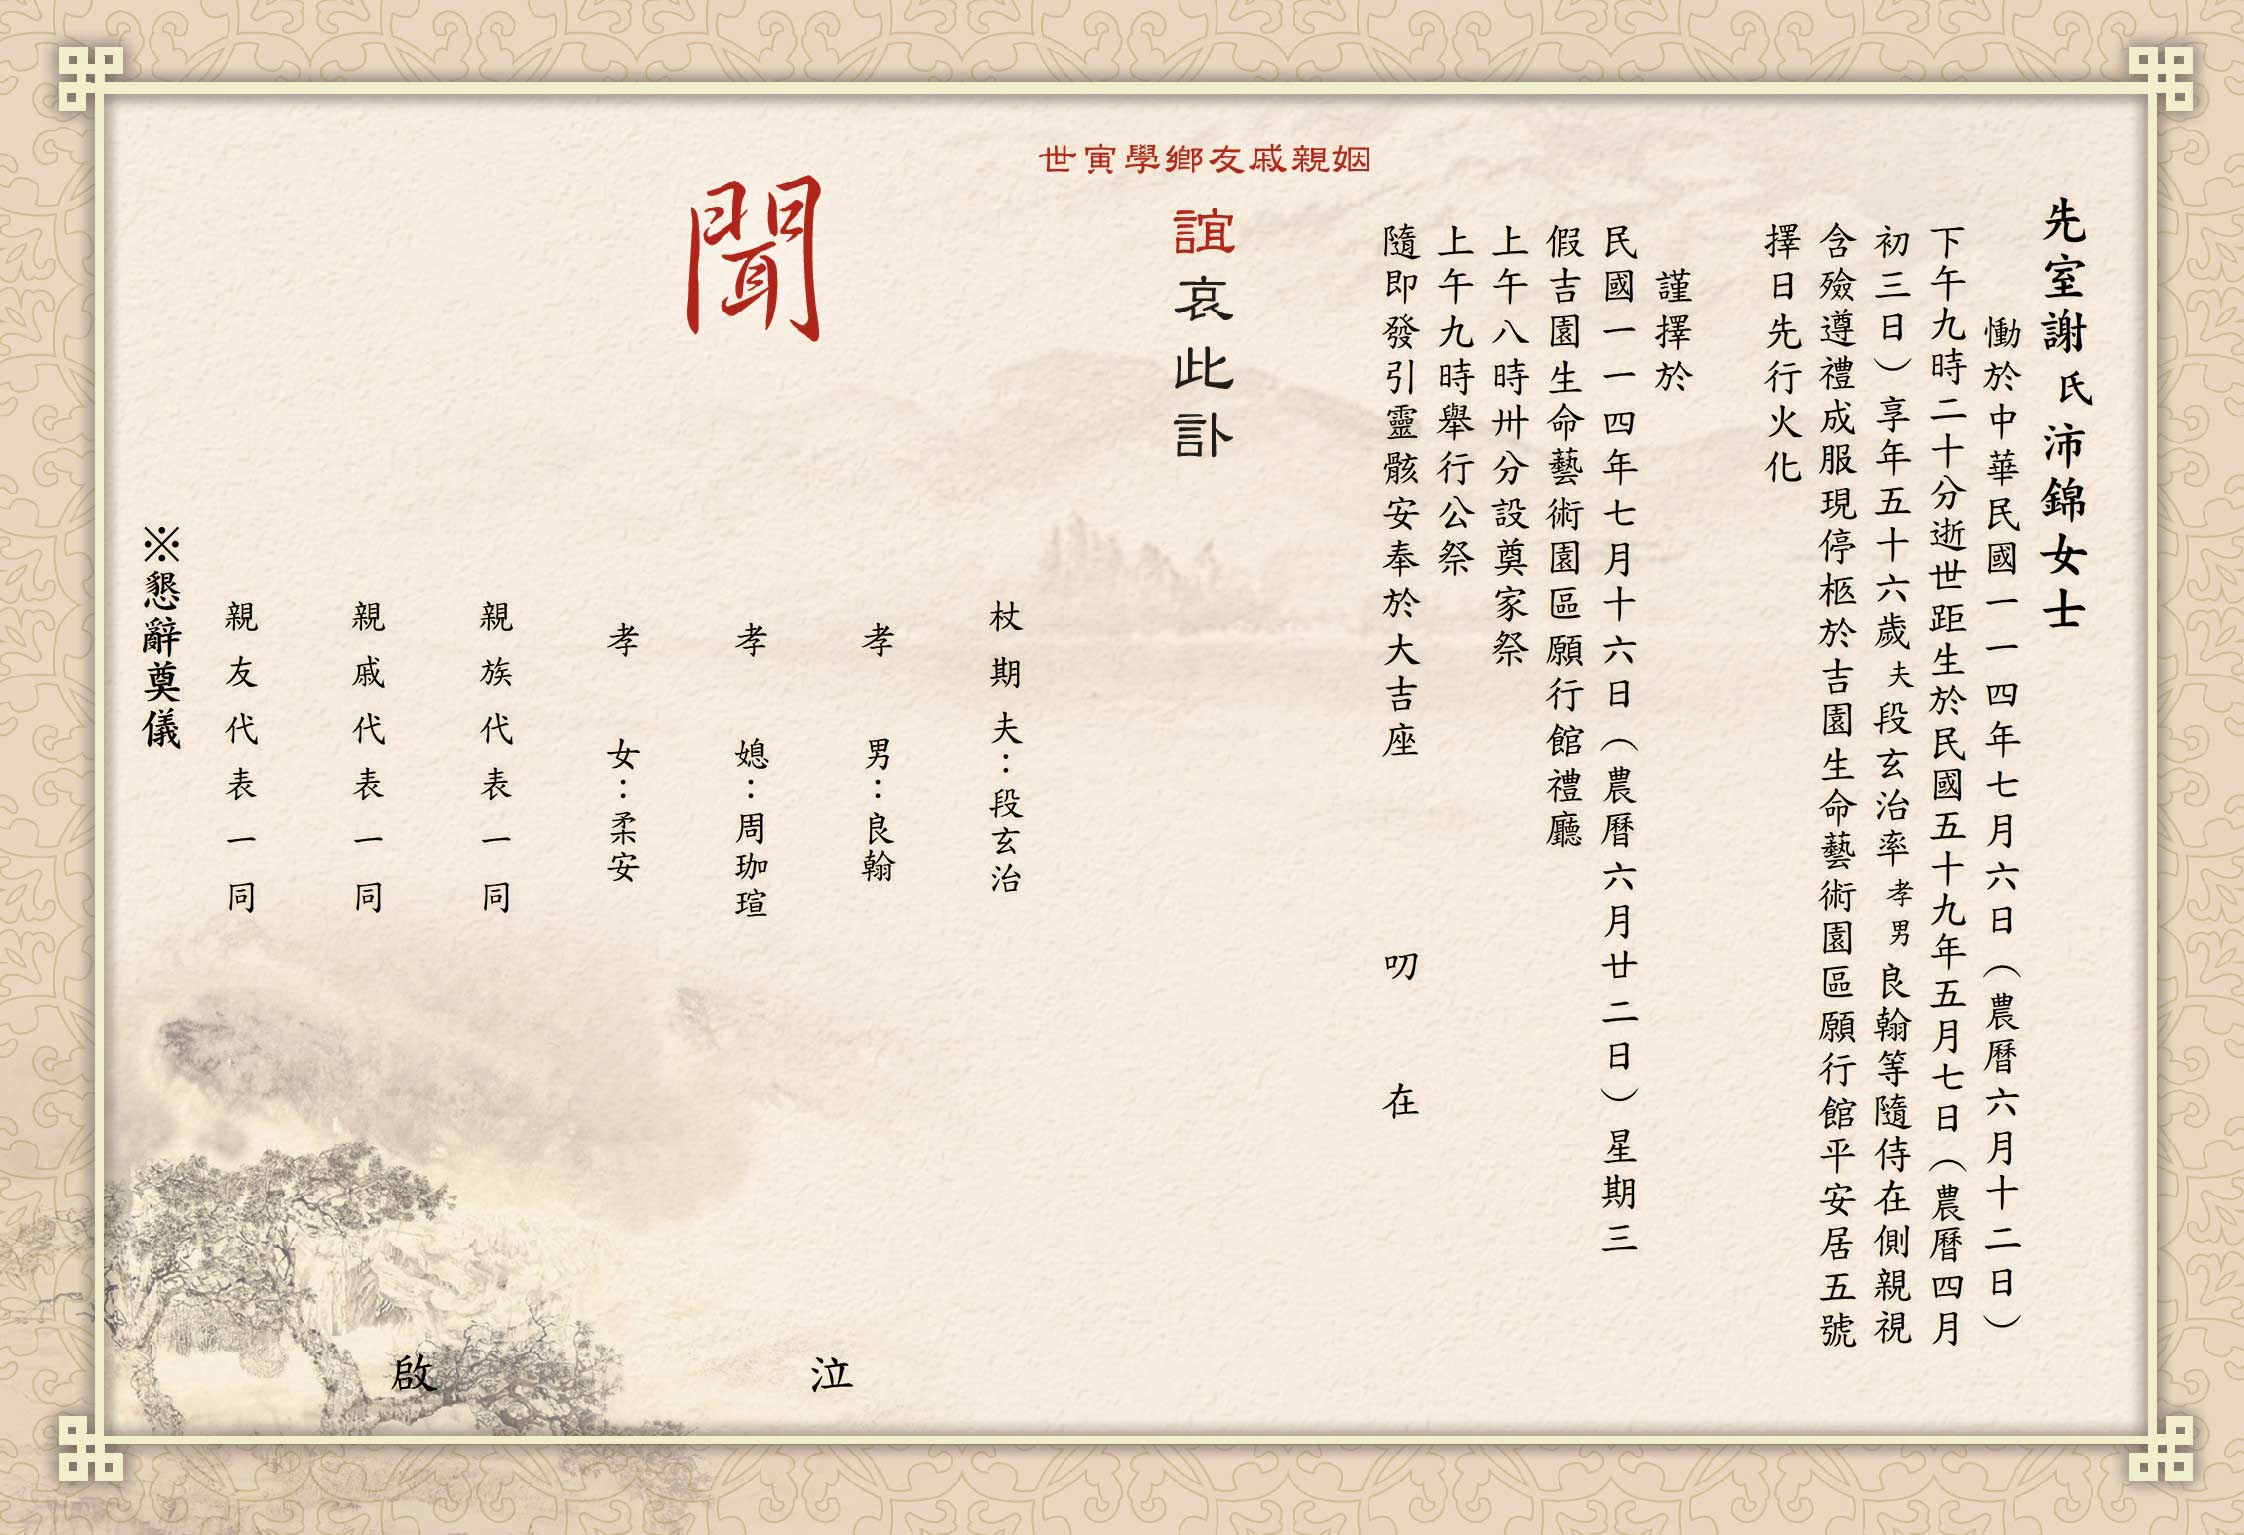 先室謝氏沛錦女士
慟於中華民國一一四年七月六日（農曆六月十二日）
下午九時二十分逝世距生於民國五十九年五月七日（農曆四月
初三日）享年五十六歲夫段玄治率孝男良翰等隨侍在側親視
含殮遵禮成服現停柩於吉園生命藝術園區願行館平安居五號
擇日先行火化
謹擇於
民國一一四年七月十六日（農曆六月廿二日）星期三
假吉園生命藝術園區願行館禮廳
上午八時卅分設奠家祭
上午九時舉行公祭
隨即發引靈骸安奉於大吉座 叨 在
姻親戚友鄉學寅世
誼哀此訃
聞
杖期夫：段玄治
孝男：良翰
孝媳：周珈瑄
孝女：柔安
親族代表一同
親戚代表一同
親友代表一同
泣 啟
※懇辭奠儀